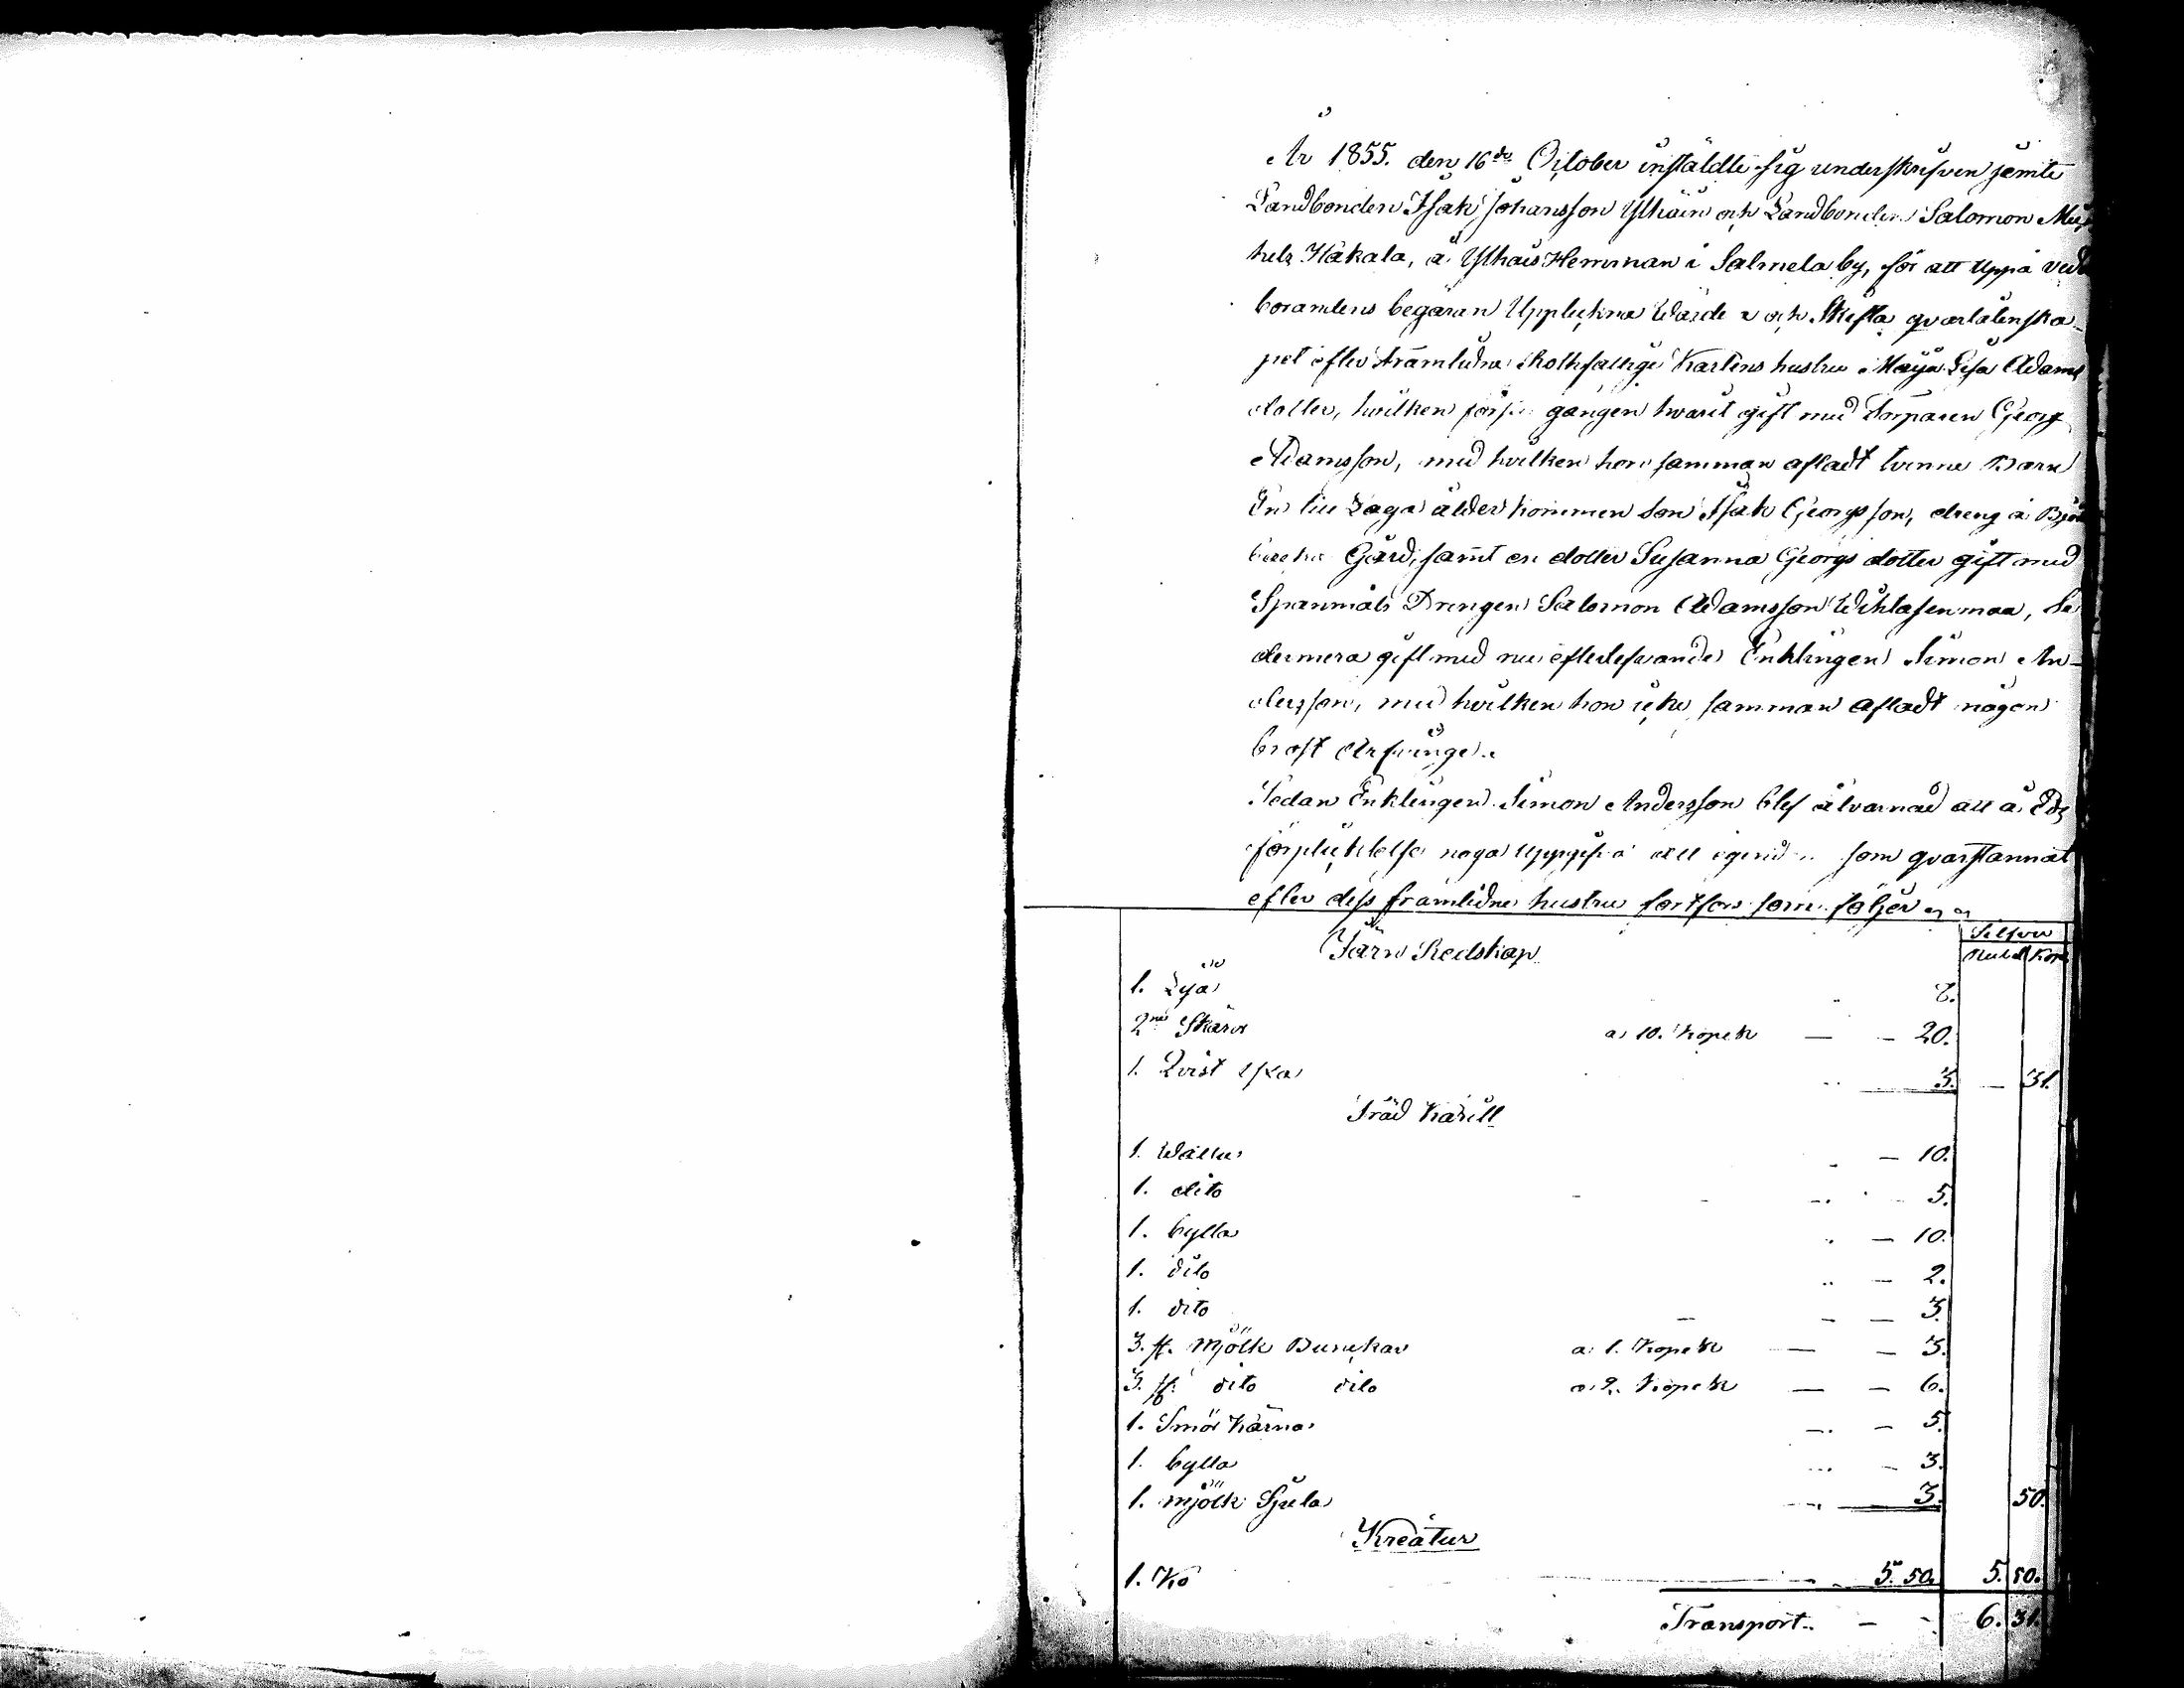 År 1855. den 16de October inställdte sig underskrifven jemte
Landbonden Isak Johansson Ylhäin och Landbonden Salomon
Häkälä, å Ylhäis Hemman i Salmela by, för att uppå
börandens begäran Upplickna Wärde a och Skifta qvarlåtenska-
pet efter framlidne Rothfattige Karlens hustru Maija Lisa Adams
dotter, hvilken förste gången hvarit gift med Torparen Georg
Adamsson, med hvilken hon samman afladt tvenne Barn
En till Laga ålder kommen Son Isak Georgsson, dreng å
Gård, samt en dotter Susanna Georgs dotter gift med
Spanmåls Drengen Salomon Adamsson Wihtasenmaa, Se
dermera gift med nu efterlefvande Enklingen Simon An-
dersson, med hvilken hon icke samman afladt någon
bröst Arfvinge.
Sedan Enklingen Simon Andersson blef alvarnad att å Eds
förplicktelse noga uppgifva all egendom som qvarstannat
efter dess framlidne hustru fortfors som följer
Silfver
Järn Redskap Rubel Kop
1. Lya 8.
2ne Skäror a 10. Kopek — - 20.
1. Qvist yxa 3. — 31.
Träd Kärill
1. Wattu — 10.
1. dito 5.
1. bytta — 10.
1. dito — 2.
1. dito — 3.
3. st. Mjölk Bunckar a 1. Kopek — - 3.
3. st. dito dito a 2. Kopek — - 6.
1. Smör Kärna — 5.
1. bytta — 3.
1. mjölk Sjula 3. 50.
Kreatur
1. Ko 5. 50. 5. 50.
Transport. — - 6. 31.